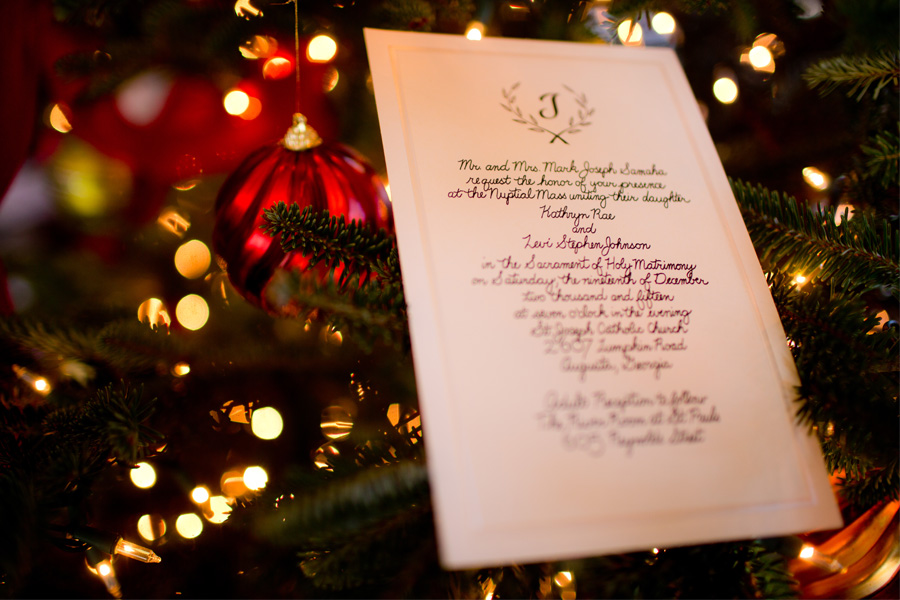 J
Mr. and Mrs. Mark Joseph Samaha
request the honor of your presence
at the Nuptial Mass uniting their daughter
Kathryn Rae
and
Levi Stephen Johnson
in the Sacrament of Holy Matrimony
on Saturday, the nineteenth of December
two thousand and fifteen
at seven o'clock in the evening
St. Joseph Catholic Church
Lumpkin Road
Augusta, Georgia
Adult Reception to follow
The River Room at St. Pauls
Reynolds Street